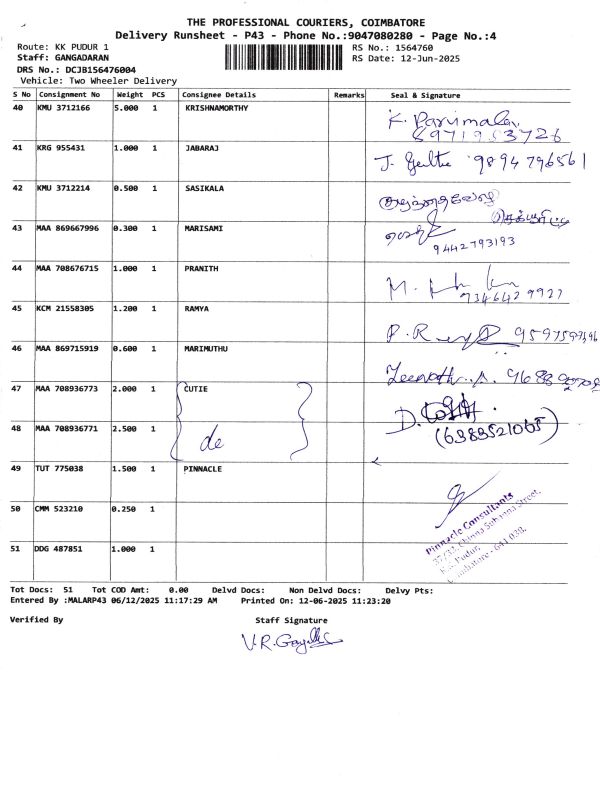 THE PROFESSIONAL COURIERS, COIMBATORE
Delivery Runsheet - P43 - Phone No.:9047080280 - Page No.:4
Route: KK PUDUR 1 RS No.: 1564760
Staff: GANGADARAN RS Date: 12-Jun-2025
DRS No.: DCJB156476004
Vehicle: Two Wheeler Delivery
S No Consignment No Weight PCS Consignee Details Remarks Seal & Signature
40 KMU 3712166 5.000 1 KRISHNAMORTHY K. Parimala
8971953726
41 KRG 955431 1.000 1 JABARAJ J. 9894796561
42 KMU 3712214 0.500 1 SASIKALA
43 MAA 869667996 0.300 1 MARISAMI
9442793193
44 MAA 708676715 1.000 1 PRANITH M.
7346429927
45 KCM 21558305 1.200 1 RAMYA P. R
46 MAA 869715919 0.600 1 MARIMUTHU
47 MAA 708936773 2.000 1 CUTIE D.
(6383521065)
48 MAA 708936771 2.500 1 de
49 TUT 775038 1.500 1 PINNACLE
50 CMM 523210 0.250 1
Pinnacle Consultants
37/32, Chinna Subanna Street,
K.K. Pudur,
Coimbatore - 641 038.
51 DDG 487851 1.000 1
Tot Docs: 51 Tot COD Amt: 0.00 Delvd Docs: Non Delvd Docs: Delvy Pts:
Entered By :MALARP43 06/12/2025 11:17:29 AM Printed On: 12-06-2025 11:23:20
Verified By Staff Signature
V.R.